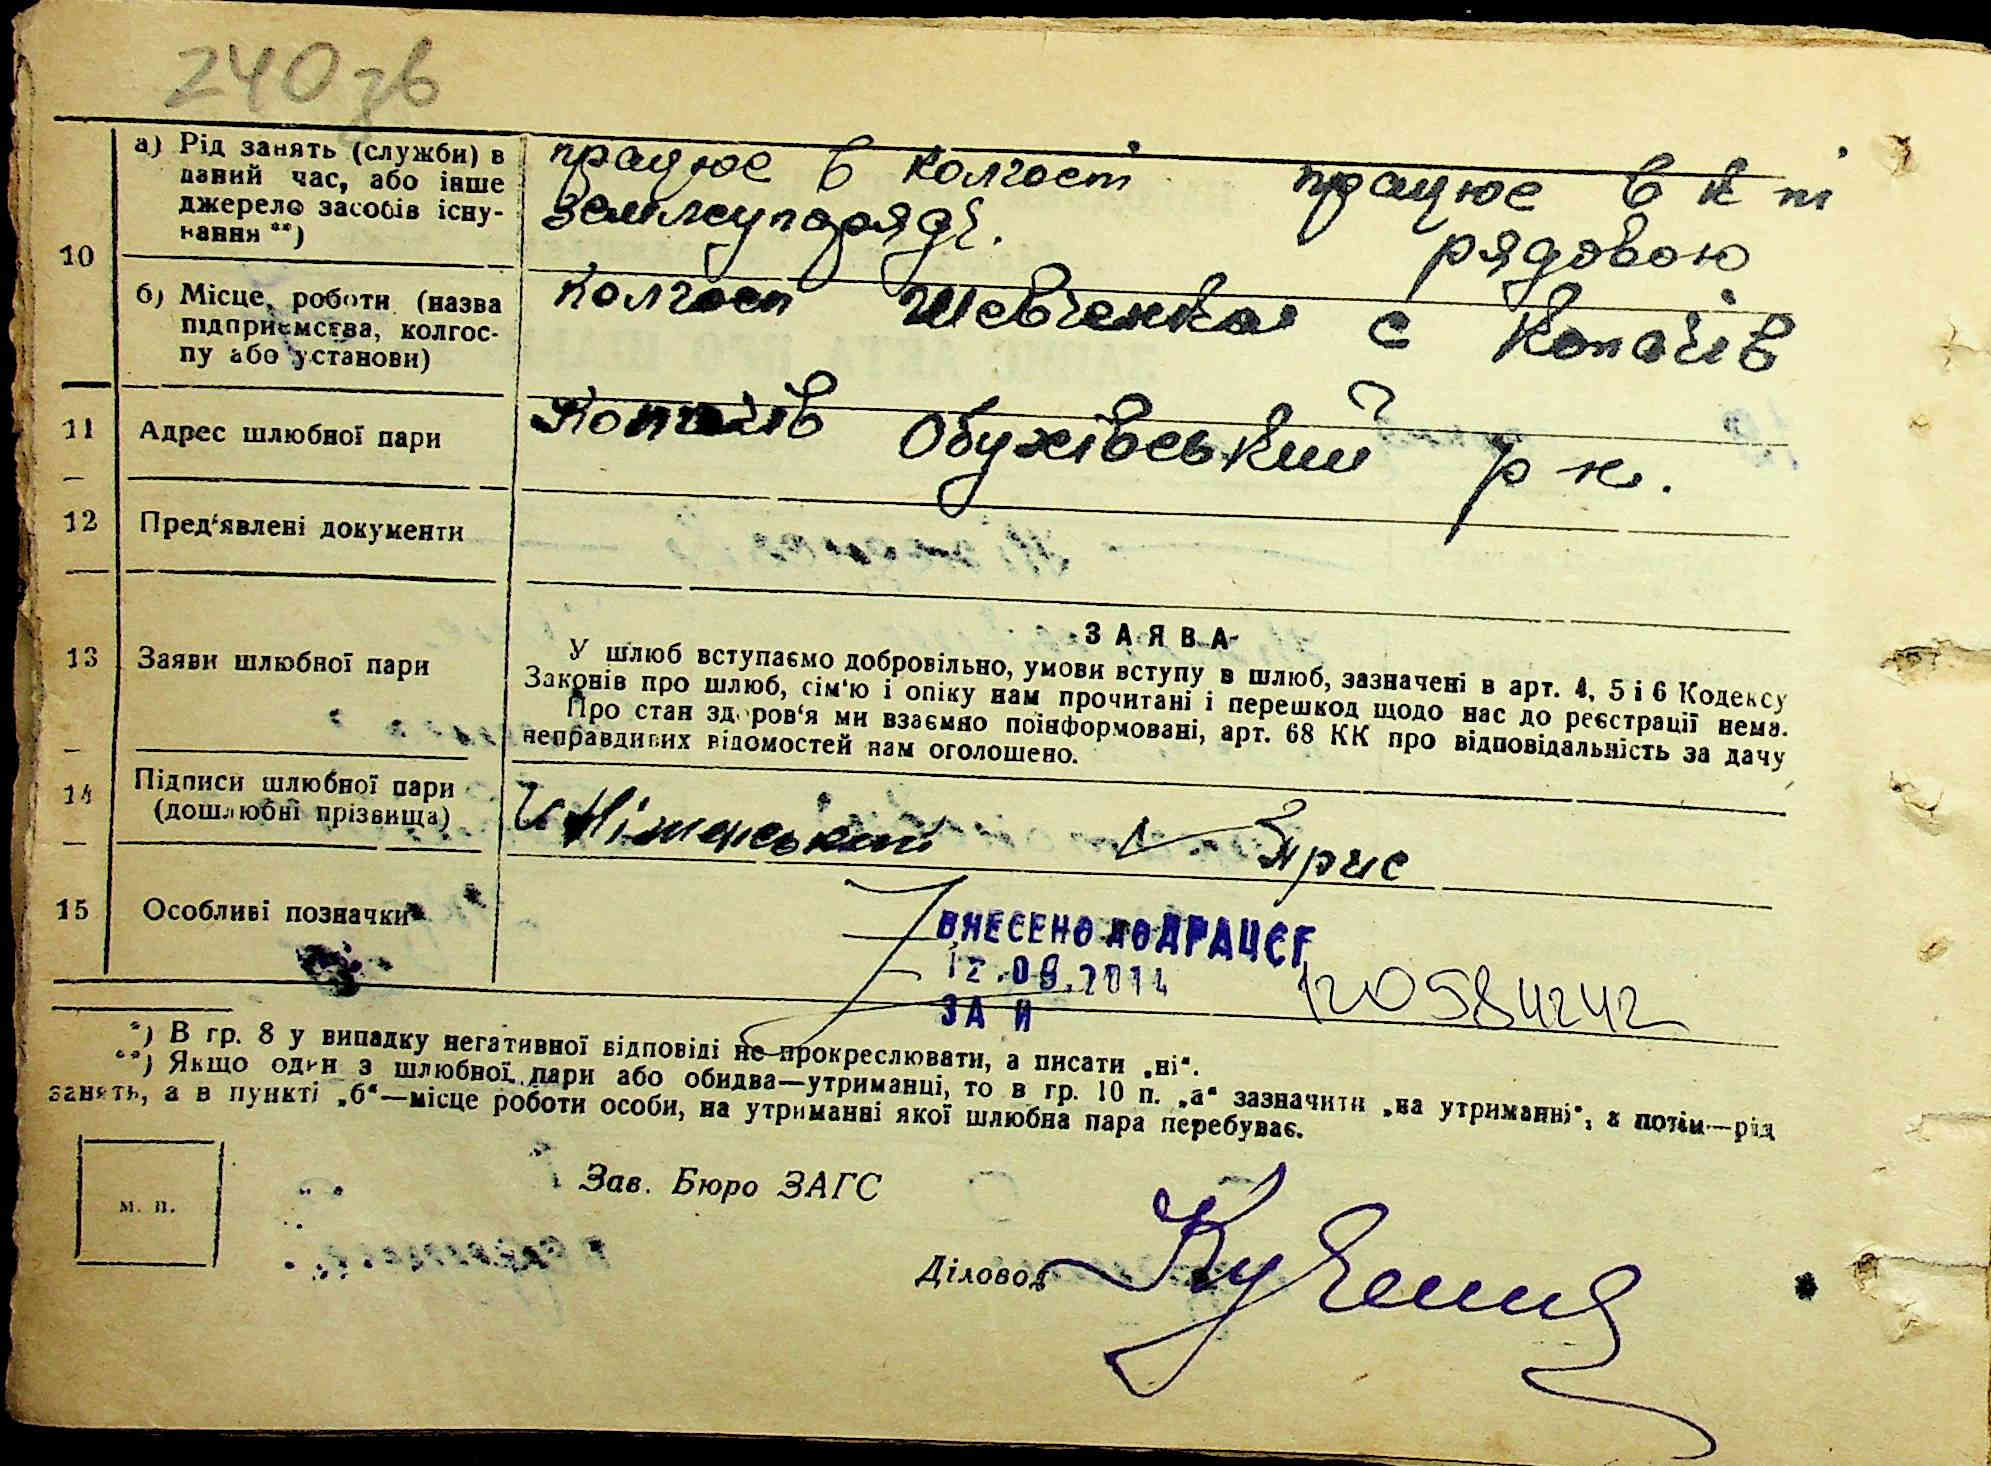 240 зв
10
а) Рід занять (служби) в
даний час, або інше
джерело засобів існу-
вання **)
працює в колгосп
землеупоряд.
працює в к пі
рядовою
б) Місце роботи (назва
підприємства, колгос-
пу або установи)
колгосп Шевченка с Копачів
11
Адрес шлюбної пари
Копачів Обухівський р н.
12
Пред'явлені документи
13
Заяви шлюбної пари
ЗАЯВА
У шлюб вступаємо добровільно, умови вступу в шлюб, зазначені в арт. 4, 5 і 6 Кодексу
Законів про шлюб, сім'ю і опіку нам прочитані і перешкод щодо нас до реєстрації нема.
Про стан здоров'я ми взаємно поінформовані, арт. 68 КК про відповідальність за дачу
неправдивих відомостей нам оголошено.
14
Підписи шлюбної пари
(дошлюбні прізвища)
Ярис
15
Особливі позначки
ВНЕСЕНО ДО ДРАЦСГ
12.09.2014
ЗА №
120584242
*) В гр. 8 у випадку негативної відповіді не прокреслювати, а писати „ні“.
**) Якщо один з шлюбної пари або обидва—утриманці, то в гр. 10 п. „а“ зазначити „на утриманні“, а потім—рід
занять, а в пункті „б“—місце роботи особи, на утриманні якої шлюбна пара перебуває.
м. п.
Зав. Бюро ЗАГС
Діловод